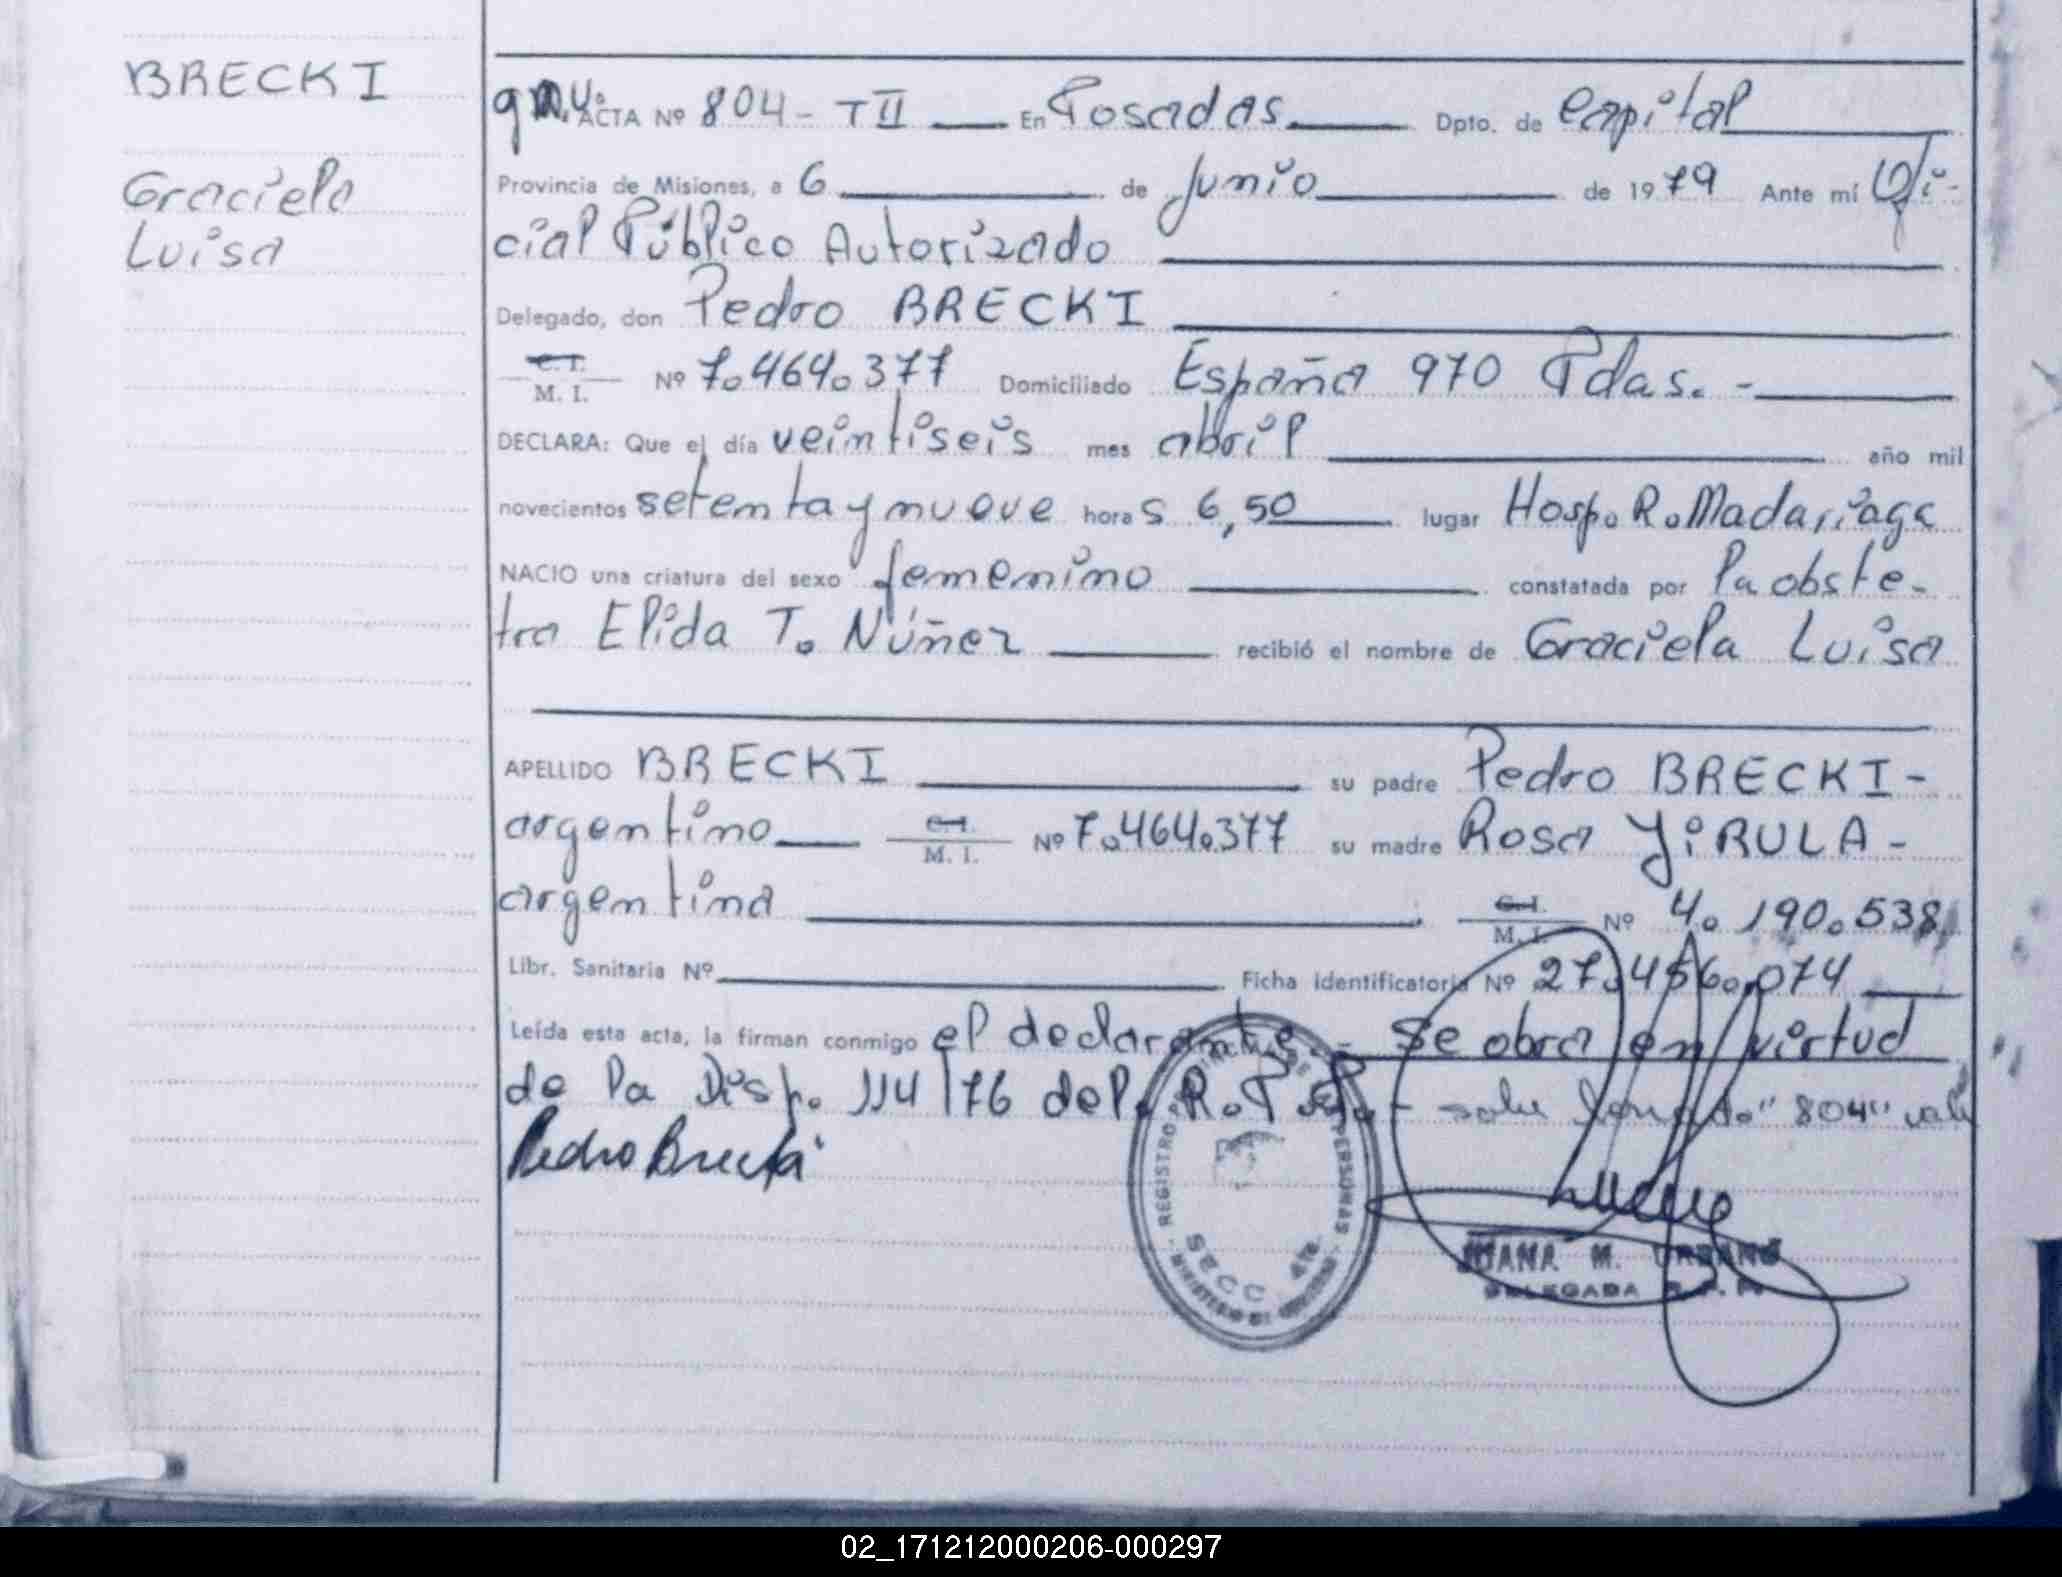 BRECKI
Graciela
Luisa
ACTA Nº 804 - T II En Posadas Dpto. de Capital
Provincia de Misiones, a 6 de junio de 1979 Ante mí Ofi-
cial Público Autorizado
Delegado, don Pedro BRECKI
C.I.
M. I. Nº 7.464.377 Domiciliado España 970 Pdas. -
DECLARA: Que el día veintiseis mes abril año mil
novecientos setenta y nueve horas 6,50 lugar Hosp. R. Madariaga
NACIO una criatura del sexo femenino constatada por la obste-
tra Elida T. Núñez recibió el nombre de Graciela Luisa
APELLIDO BRECKI su padre Pedro BRECKI -
argentino C.I. M. I. Nº 7.464.377 su madre Rosa YiRULA -
argentina C.I. M. I. Nº 4.190.538
Libr. Sanitaria Nº Ficha Identificatoria Nº 27.456.074
Leída esta acta, la firman conmigo el declarante - Se obra en virtud
de la Disp. 114/76 del R.P. - "804" vale
Pedro Brecki
REGISTRO PERSONAS
SECC 4ta.
MINISTERIO DE GOBIERNO
JUANA M. URBANO
DELEGADA R. P. P.
02_171212000206-000297